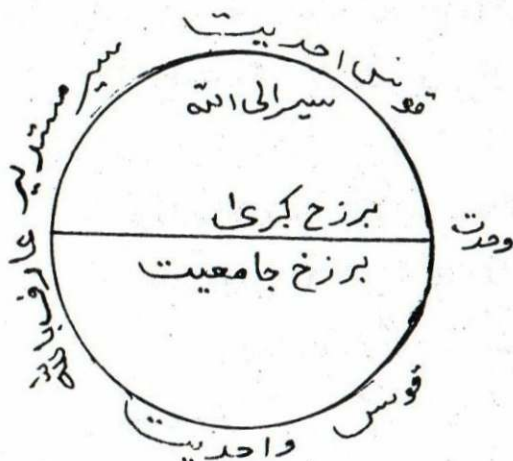 قوس احدیت
سیر الی اللہ
برزخ کبریٰ
وحدت
برزخ جامعیت
سیر مستدیر عارف باللہ
قوس واحدیت